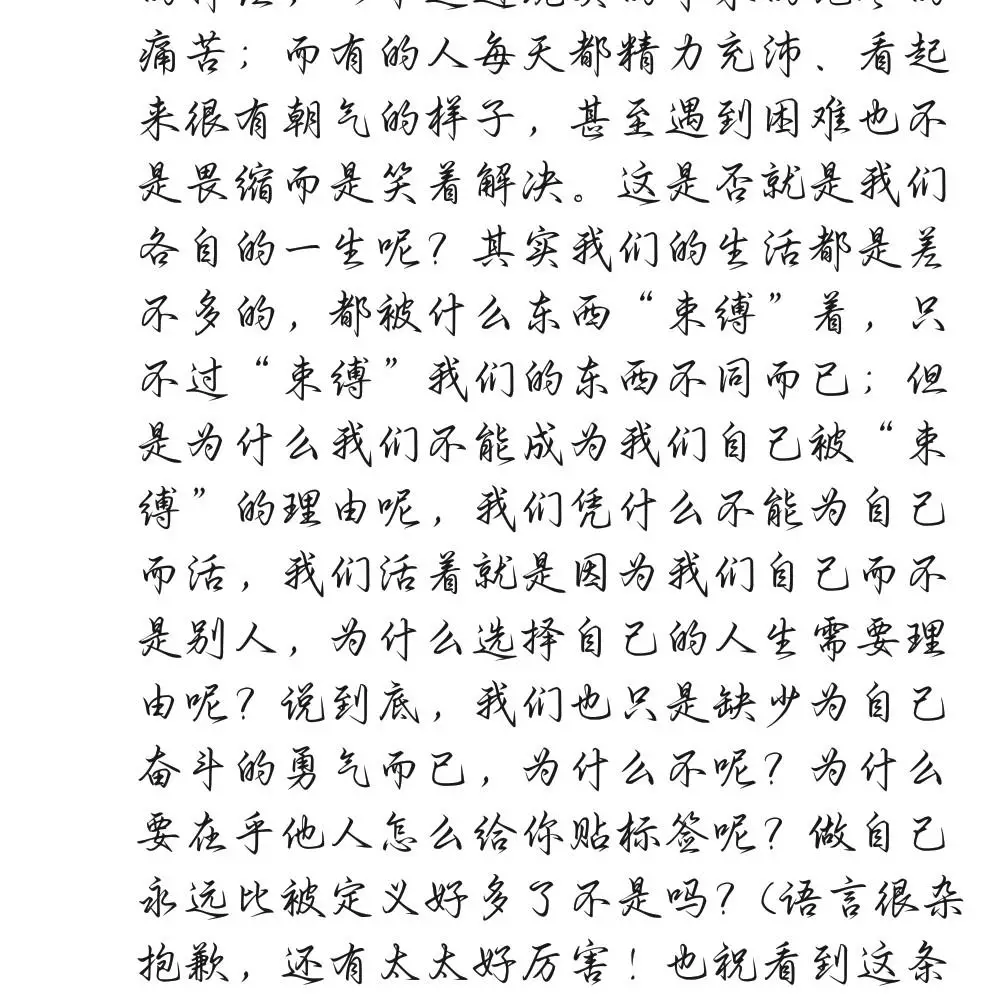 痛苦；而有的人每天都精力充沛、看起
来很有朝气的样子，甚至遇到困难也不
是畏缩而是笑着解决。这是否就是我们
各自的一生呢？其实我们的生活都是差
不多的，都被什么东西“束缚”着，只
不过“束缚”我们的东西不同而已；但
是为什么我们不能成为我们自己被“束
缚”的理由呢，我们凭什么不能为自己
而活，我们活着就是因为我们自己而不
是别人，为什么选择自己的人生需要理
由呢？说到底，我们也只是缺少为自己
奋斗的勇气而已，为什么不呢？为什么
要在乎他人怎么给你贴标签呢？做自己
永远比被定义好多了不是吗？（语言很杂
抱歉，还有太太好厉害！也祝看到这条